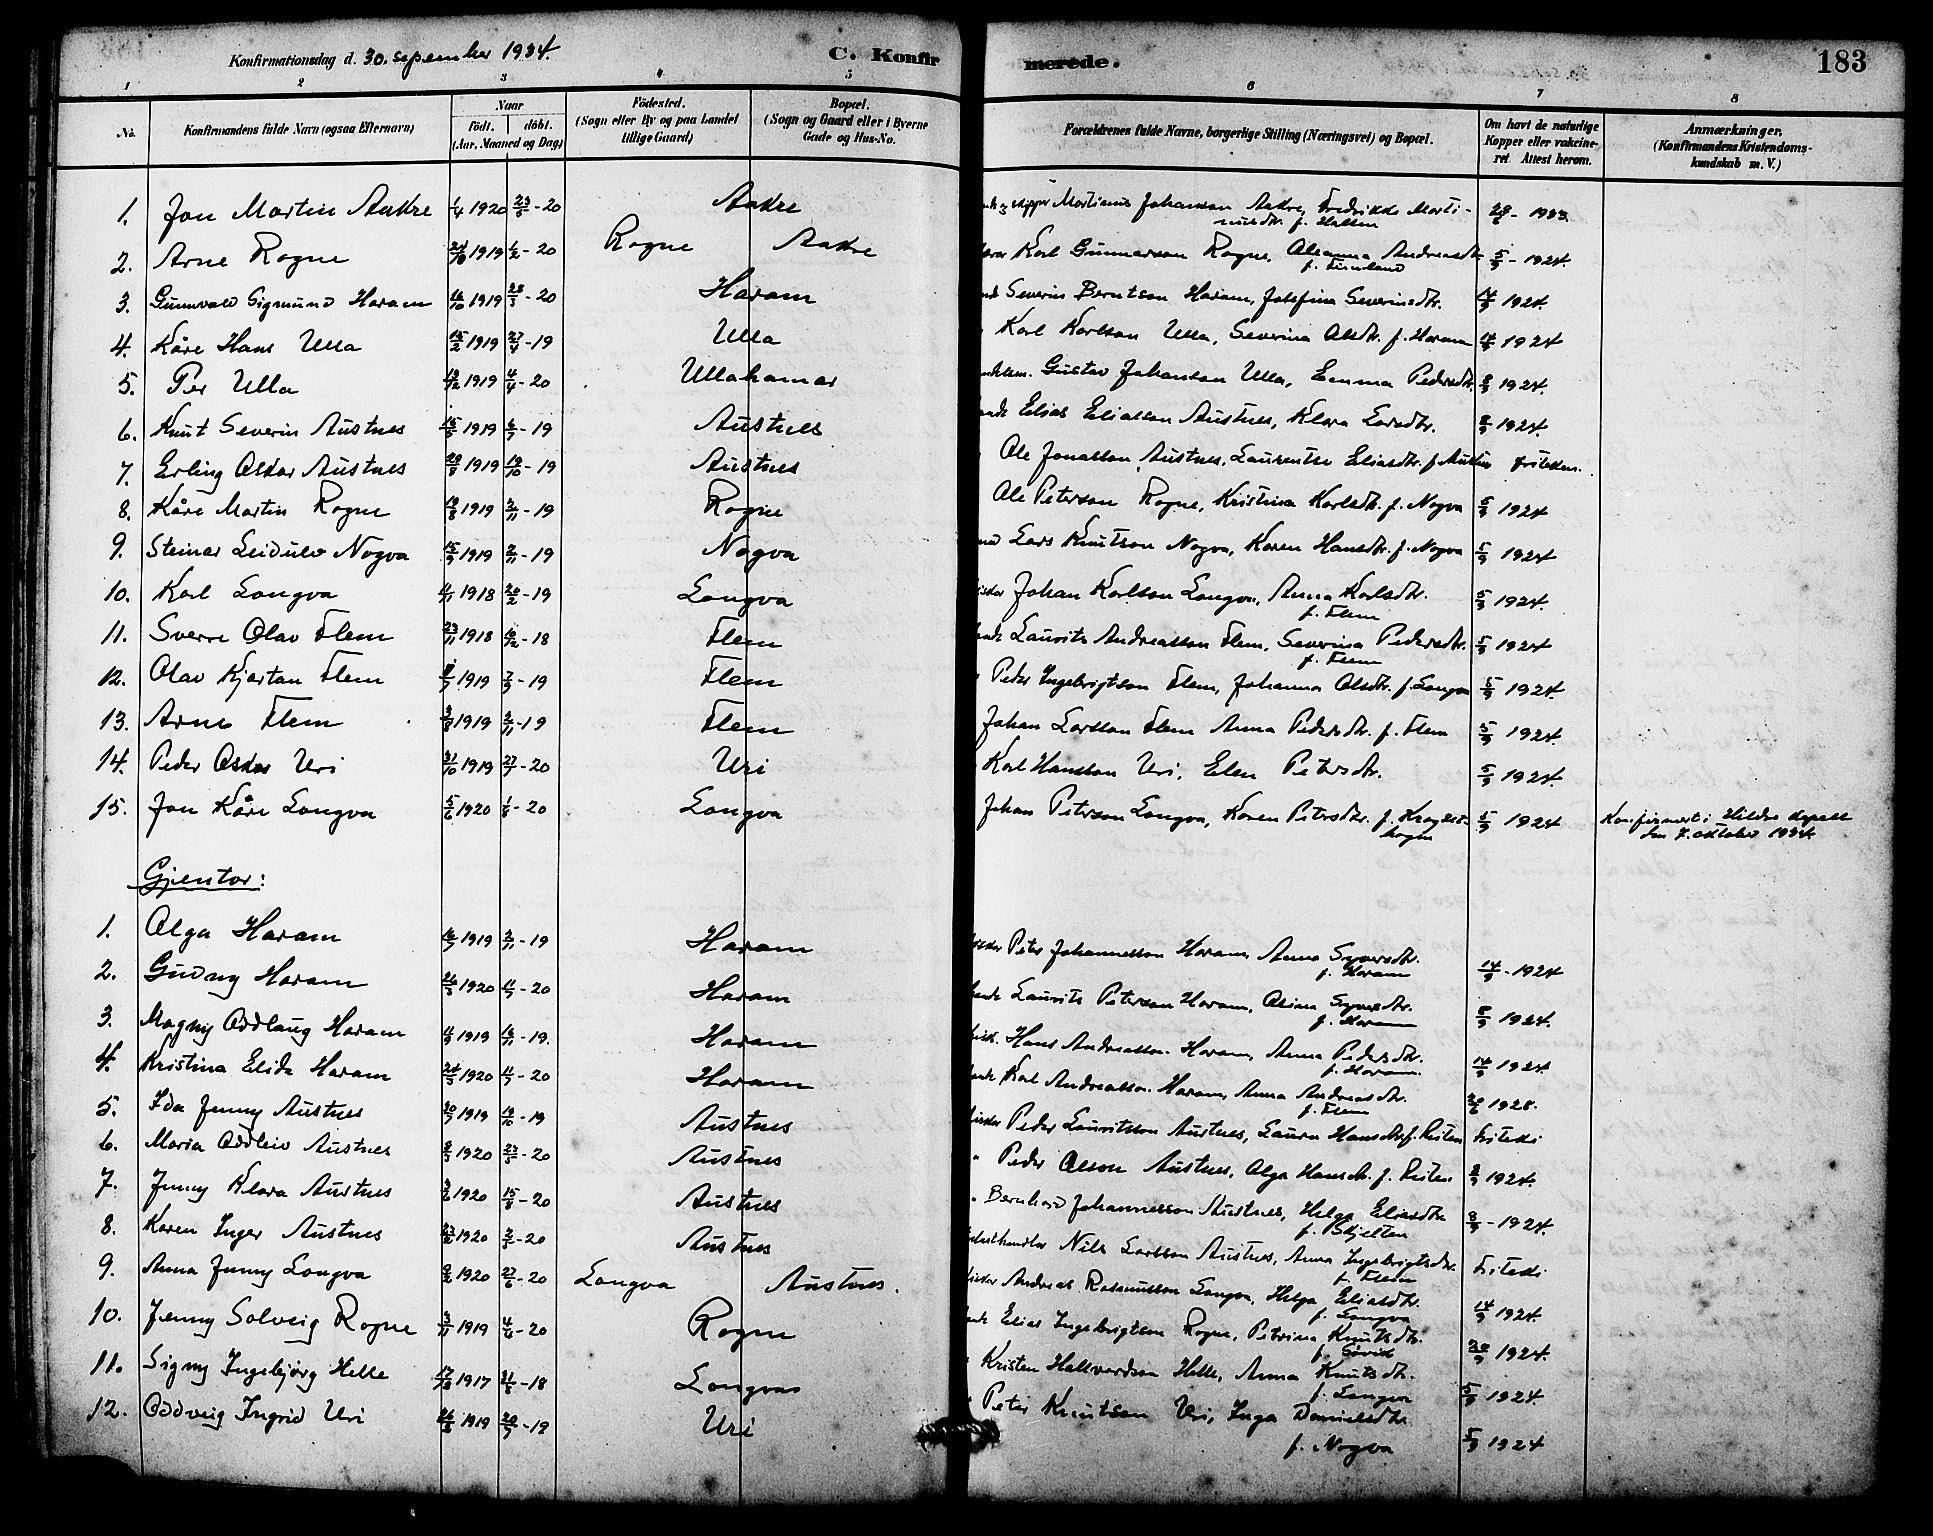 Konfirmationsdag d. 30. september 1934. C. Konfirmerede. 183
1 2 3 4 5 6 7 8
No. Konfirmandens fulde Navn (ogsaa Efternavn) Naar födt. döbt. (Aar, Maaned og Dag) Födested. (Sogn eller By og paa Landet tillige Gaard) Bopæl. (Sogn og Gaard eller i Byerne Gade og Hus-No. Forældrenes fulde Navne, borgerlige Stilling (Næringsvei) og Bopæl. Om havt de naturlige Kopper eller vakcineret. Attest herom. Anmærkninger. (Konfirmandens Kristendomskundskab m. V.)
1. Jon Martin Aakre 1/4 1920 23/5-20 Aakre skipper Martinus Johanson Aakre, Fredrikke Martinusdtr. 1933.
2. Arne Rogne 1919 -20 Rogne Aakre Karl Gunnarson Rogne, Andreasdtr. 5/9-1924.
3. Gunnvald Sigmund Haram 16/10 1919 28/3-20 Haram Severin Berntson Haram, Josefina Severinsdtr. 14/9 1924.
4. Kåre Hans Ulla 15/2 1919 27/4-19 Ulla Karl Karlson Ulla, Severina Olsdtr. f. Haram 14/9 1924
5. Per Ulla 1919 4/4-20 Ullahamar Gustav Johanson Ulla, Emma Pedersdtr. 8/9 1924.
6. Knut Severin Austnes 15/5 1919 6/7-19 Austnes Elias Eliasson Austnes, Klara Larsdtr. 8/9 1924.
7. Erling Oskar Austnes 1919 19/10-19 Austnes Ole Jonasson Austnes, Laurentse Eliasdtr. f. Austnes
8. Kåre Martin Rogne 19/8 1919 2/11-19 Rogne Ole Peterson Rogne, Kristina Karlsdtr. f. Nogva 5/9 1924
9. Steinar Leidulv Nogva 15/9 1919 2/11-19 Nogva Lars Knutson Nogva, Karen Hansdtr. f. Nogva 5/9 1924
10. Karl Longva 1918 20/2-19 Longva Johan Karlson Longva, Anna Karlsdtr. f. Flem 5/9 1924.
11. Sverre Olav Flem 23/11 1918 -18 Flem Laurits Andreasson Flem, Severina Pedersdtr. f. Flem 5/9 1924
12. Olav Kjartan Flem 1919 7/9-19 Flem Peder Ingebrigtson Flem, Johanna Olsdtr. f. Longva 5/9 1924.
13. Arne Flem 1919 2/11-19 Flem Johan Larsson Flem Anna Pedersdtr. f. Flem 5/9 1924.
14. Peder Oskar Uri 31/10 1919 -20 Uri Karl Hansson Uri, Elen Petersdtr. 5/9 1924.
15. Jon Kåre Longva 5/6 1920 1/8-20 Longva Johan Peterson Longva, Karen Petersdtr. 5/9 1924 Konfirmert i Hildre kapell den 7. oktober 1934.
Gjentor:
1. Olga Haram 16/7 1919 2/11-19 Haram Peter Johannesson Haram, Anna Syversdtr. f. Haram 14/9-1924
2. Gudny Haram 1920 -20 Haram Laurits Peterson Haram, Olina Syversdtr. f. Haram 8/9 1924.
3. Magny Oddlaug Haram 4/9 1919 16/11-19. Haram Hans Andreasson Haram, Anna Pedersdtr. f. Haram. 14/9 1924.
4. Kristina Elida Haram 1920 -20 Haram Karl Andreasson Haram, Anna Andreasdtr. f. Flem 1928.
5. Ida Jenny Austnes 20/7 1919 19/10-19 Austnes Peder Lauritsson Austnes, Laura Hansdtr.
6. Maria Oddleiv Austnes 1920 23/5-20 Austnes Peder Olson Austnes, Olga Hansdtr. 8/9 1924.
7. Jenny Klara Austnes 1920 15/8-20 Austnes Bernhard Johannesson Austnes, Helga Eliasdtr. f. Skjelten 8/9-1924.
8. Karen Inger Austnes 1920 -20 Austnes Nils Larsson Austnes, Anna Ingebrigtsdtr. f. Flem
9. Anna Jenny Longva 1920 27/6-20 Longva Austnes. Andreas Rasmusson Longva, Helga Eliasdtr. f. Longva 14/9 1924
10. Jenny Solveig Rogne 3/11 1919 4/4-20 Rogne Elias Ingebrigtson Rogne, Petrina Knutsdtr. 1924.
11. Signy Ingebjørg Helle 1917 -18 Longva Kristen Hallvardson Helle, Anna Knutsdtr. f. Longva 5/9 1924
12. Oddveig Ingrid Uri 1919 20/7-19 Uri Peter Knutson Uri, Inga Danielsdtr. f. Nogva 5/9 1924